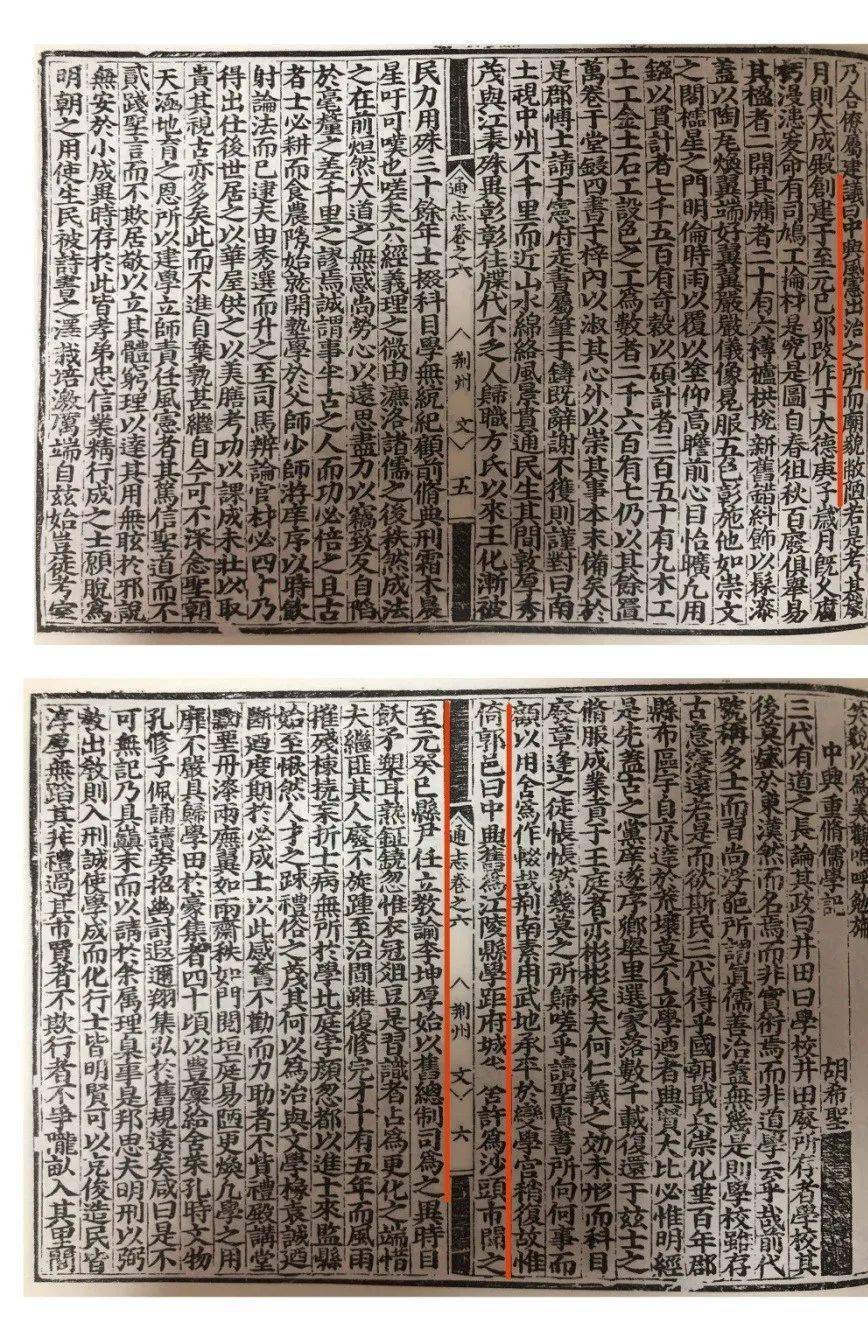 乃合僚屬建議曰中興風憲治之所而廟貌敝陋若是考其
月則大成殿創建于至元己卯改作于大德庚子歲月既久腐
朽漫漶爰命有司鳩工掄材是究是圖自春徂秋百廢俱舉易
其楹者二開其牖者二十有六榑櫨栱桷新舊甜糾飾以髹漆
蓋以陶瓦煥麗端好翼翼嚴嚴儀像冕服五色彰施他如崇文
之閣櫺星之門明倫時雨以覆以塗仰高瞻前心目怡曠凡用
鏹以貫計者七千五百有奇穀以碩計者三百五十有九木工
土工金土石工設色之工為數者二千六百有七仍以其餘置
萬卷于堂鋟四書于梓內以淑其心外以崇其事本末備矣於
是郡博士請于憲府走書屬筆于鑄既辭謝不獲則謹對曰南
土視中州不千里而近山水綿絡風景貫通民生其間敦厚秀
茂與江表殊異彰彰往牒代不乏人歸職方氏以來王化漸被
通志卷之六 荆州 文 五
民力用殊三十餘年士掇科目學無統紀顧前脩典刑霜木晨
星吁可嘆也嗟夫六經義理之微由濂洛諸儒之後秩然成法
之在前烜然大道之無惑尚勞心以遠思盡力以竊致反自陷
於毫釐之差千里之謬焉誠謂事半古之人而功必倍之且古
者士必耕而食農隙始就開塾學於父師少師將庠序以時飲
射論法而已逮夫由秀選而升之至司馬辨論官材必四十乃
得出仕後世居之以華屋供之以美膳考功以課成未壯以取
貴其視古亦多矣此而不進自棄孰甚繼自今可不深念聖朝
天涵地育之恩所以建學立師責任風憲者其篤信聖道而不
貳踐聖言而不欺居敬以立其體窮理以達其用無眩於邪說
無安於小成異時存於此皆孝弟忠信業精行成之士願脫為
明朝之用使生民被詩書之澤栽培激厲端自玆始豈徒考室
中興重脩儒學記 胡希聖
三代有道之長論其政曰井田曰學校井田廢所存者學校其
後莫盛於東漢然而名焉而非實術焉而非道學云乎哉前代
號稱多士而習尚浮皅所謂真儒善治蓋無幾是則學校雖存
古意深遠若是而欲斯民三代得乎國朝戢兵崇化垂百年郡
縣布區宇自京達於荒壤莫不立學迺者典賢大比必惟明經
是先蓋古之黨庠遂序鄉舉里選寥落數千載復還于玆士之
脩服成業貢于王庭者亦彬彬矣夫何仁義之効未形而科目
廢章逢之徒悵悵然幾莫之所歸嗟乎讀聖賢書所向何事而
顧以用舍為作輟哉荆南素用武地承平於變學宮稍復故惟
倚郭邑曰中興舊為江陵縣學距府城少 舍許為沙頭市閧之
通志卷之六 荆州 文 六
至元癸巳縣尹任立教諭李坤厚始以舊總制司為之異時目
飫矛槊耳熟鉦鐃忽惟衣冠俎豆是習識者占為更化之端惜
大繼匪其人廢不旋踵至治間雖復修完才十有五年而風雨
摧殘棟撓桷折士病無所於學北庭字顏忽都以進士來監縣
始至愀然人才之踈禮俗之荗其何以為治與文學掾袁誠迺
斷迺度期於必成士以此感奮不勸而力助者不貲禮殿講堂
黝堊丹漆兩廡翼如兩齋秩如門閎垣庭易陋更煥凡學之用
靡不嚴具歸學田於豪集者四十頃以豐廩給舍菜孔時文物
孔修子佩誦讀旁招幽討遐邇翔集弘於舊規遠矣咸曰是不
可無記乃具巔末而以請於余属理臬事是邦思夫明刑以弼
教出教則入刑誠使學成而化行士皆明賢可以克俊造民皆
淳厚無蹈其非禮過其市賢者不欺行者不爭隴畝入其里閭